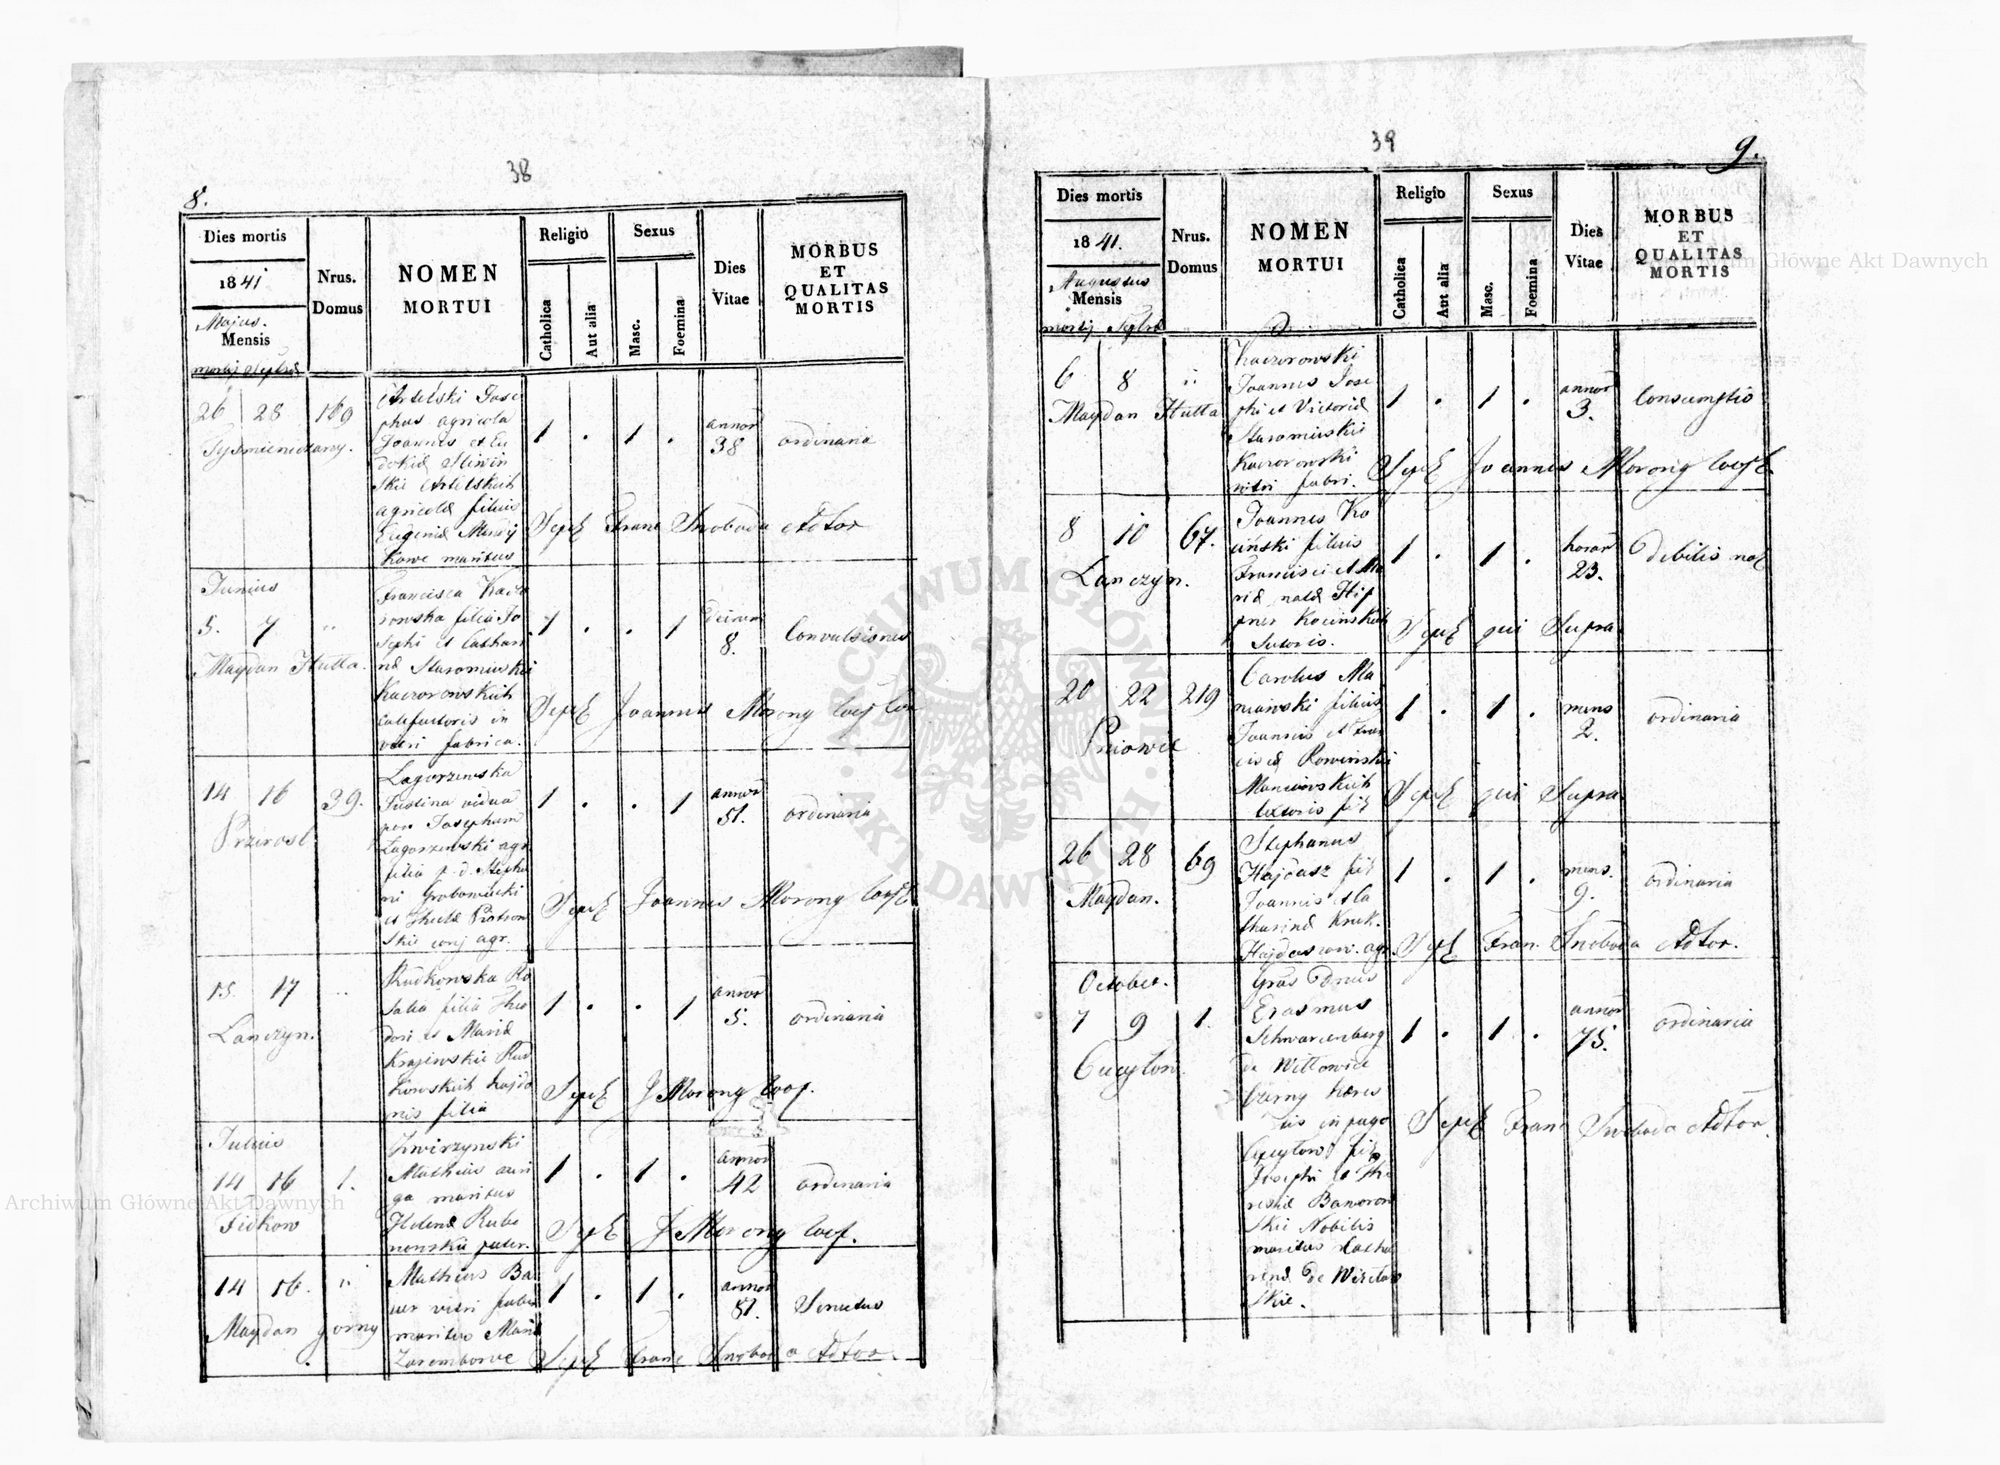 38
8.
Dies mortis
1841
Majus.
Mensis
Nrus.
Domus
NOMEN
MORTUI
Religio
Catholica
Aut alia
Sexus
Masc.
Foemina
Dies
Vitae
MORBUS
ET
QUALITAS
MORTIS
26 28 169
Tysmieniczany.
Josephus agricola
Joannis et Eu
dokiæ Sliwin
skie
agricolæ filius
Eugeniæ
maritus
1 . 1 .
annor
38
ordinaria
Sepel Franc Swoboda Adtor
Junius
5. 7 "
Magdan Hutta.
Francisca Kaczo
rowska filia Jo
sephi et Cathari
næ Staromiuskie
Kaczorowskich
calefactoris in
vitri fabrica.
1 . . 1
dierum
8.
Convulsiones
Sepel Joannes Morong
14 16 39.
Przerosl.
Lagorzewska
Justina vidua
post Josephum
Lagorzewski agr.
filia p. d. Stepha
ni
et Theclæ
skie conj agr.
1 . . 1
annor
51.
ordinaria
Sepel Joannes Morong
15. 17 ..
Lanczyn.
Rudkowska Ro
salia filia Theo
dori et Mariæ
Krajewskie Rud
kowskich
filia
1 . . 1
annor
5.
ordinaria
Sepel J Morong
Julius
14 16 1.
Fitkow
Zwirzynski
Mathias auri
ga maritus
Helenæ
1 . 1 .
annor
42
ordinaria
Sepel J Morong
14 16. "
Magdan gorny
Mathias Ba
uer vitri faber
maritus Mariæ
Zarembowe
1 . 1 .
annor
81.
Senectus
Sepel Franc Swoboda Adtor.
39
9.
Dies mortis
1841.
Augustus
Mensis
Nrus.
Domus
NOMEN
MORTUI
Religio
Catholica
Aut alia
Sexus
Masc.
Foemina
Dies
Vitae
MORBUS
ET
QUALITAS
MORTIS
6 8 "
Magdan Hutta
Kaczorowski
Joannes Jose
phi et Victoriæ
Staromiuskie
Kaczorowski
vitri fabri.
1 . 1 .
annor
3.
Consumptio
Sepel Joannes Morong
8 10 67.
Lanczyn.
Joannes Ko
cinski filius
Francisci et Ma
riæ natæ Hip
pner Kocinskich
Sutoris.
1 . 1 .
horar
23.
Debilis nat
Sepel qui Supra
20 22 219
Pniowie
Carolus Ma
niawski filius
Joannis et Fran
ciscæ Rowinskie
Maniawskich
textoris fil
1 . 1 .
mens
2.
ordinaria
Sepel qui Supra.
26 28 69
Magdan.
Stephanus
Hajdasz fil
Joannis et Ca
tharinæ Kruk.
1 . 1 .
mens.
9.
ordinaria
Sepel Fran. Swoboda Adtor.
October.
7 9 1.
Cucylow
Erasmus
Schwarzenberg
de Wittowice
Czerny hære
dis in pago
Cucylow fil
Josephi et The
resiæ Baworow
skie Nobilis
maritus Catha
rinæ de
skie.
1 . 1 .
annor
75.
ordinaria
Sepel Franc Swoboda Adtor.
Archiwum Główne Akt Dawnych
Archiwum Główne Akt Dawnych
ARCHIWUM GŁÓWNE
AKT DAWNYCH